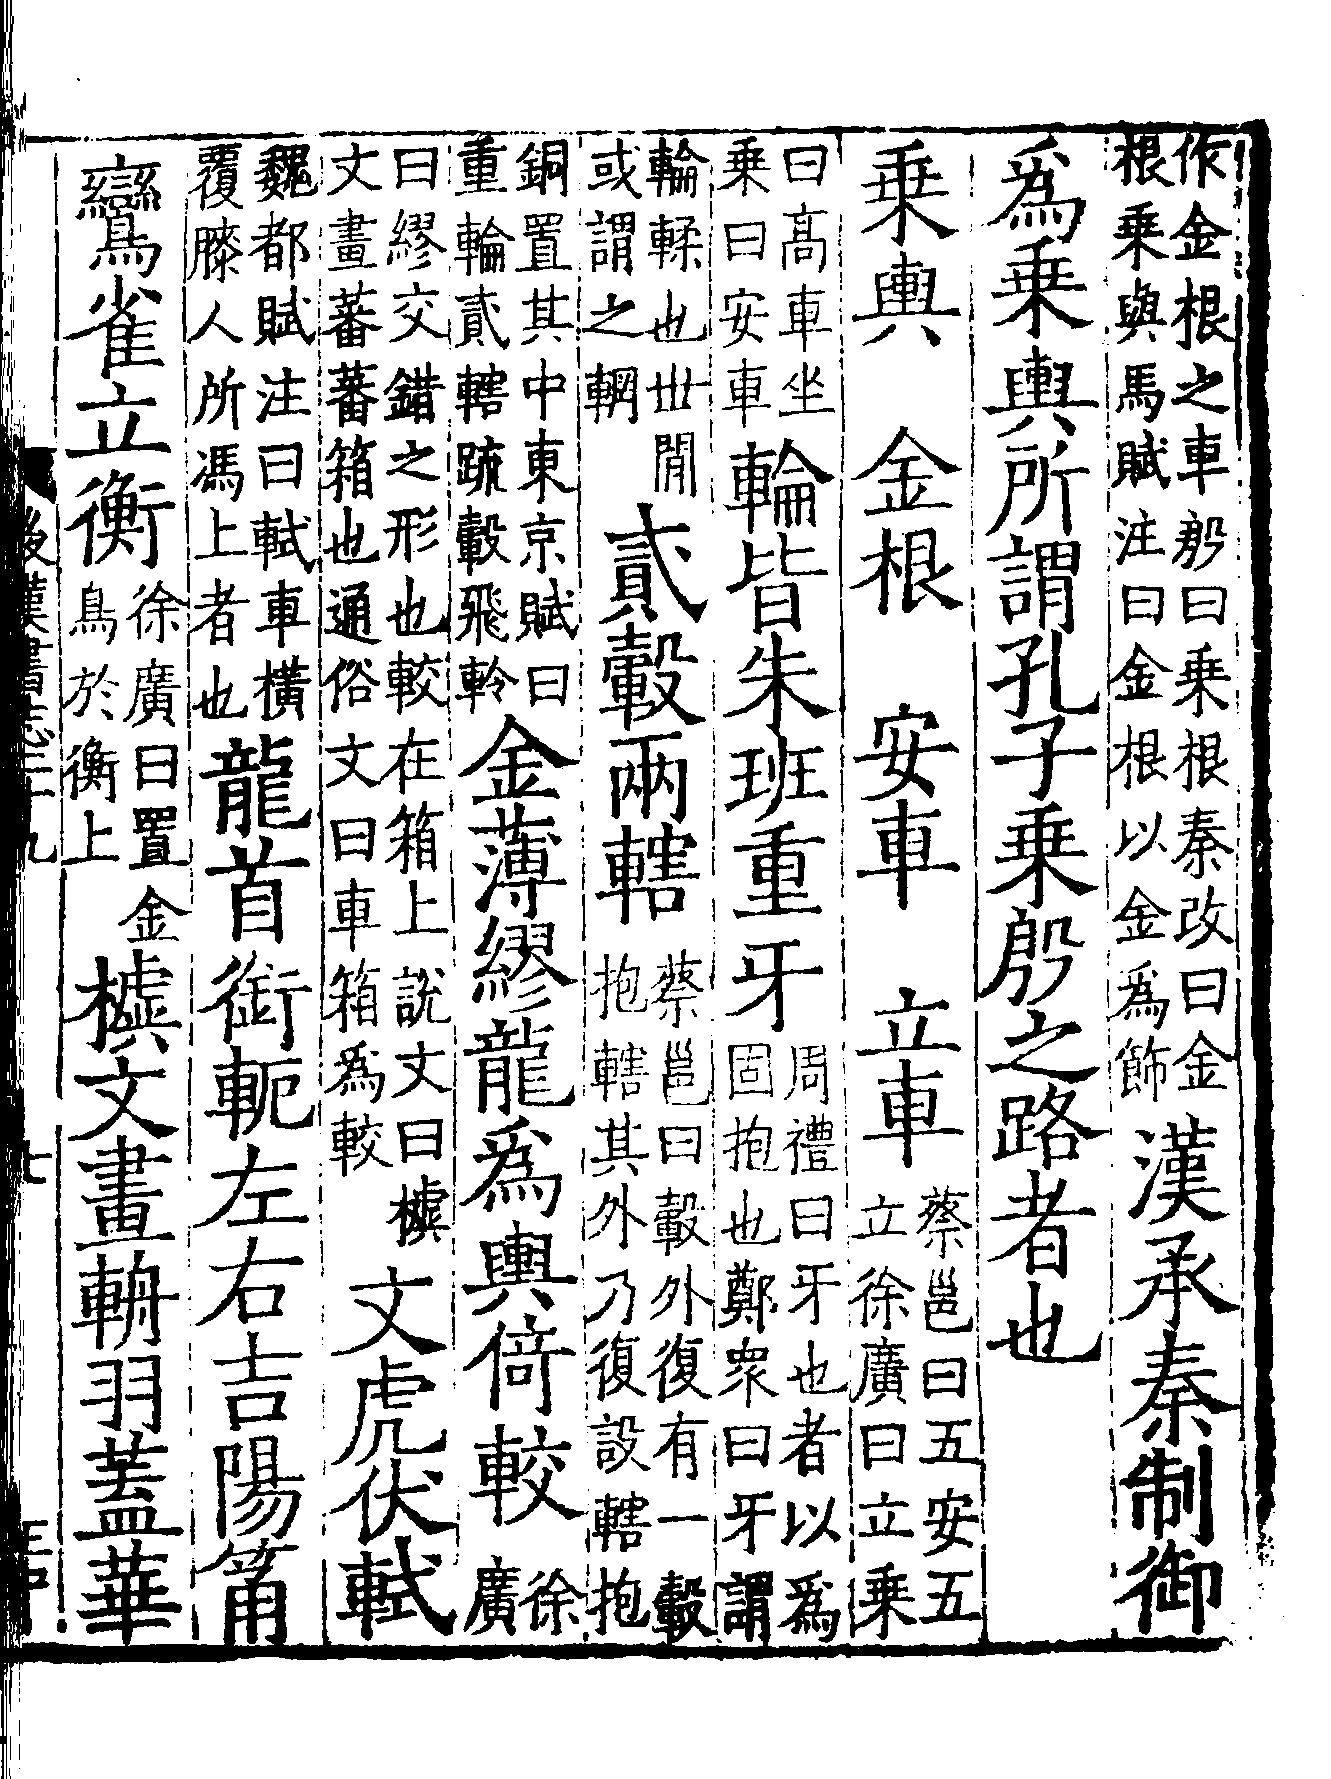 作金根之車殷曰乗根秦改曰金
根乗輿馬賦注曰金根以金為飾
漢承秦制御
為乗輿所謂孔子乗殷之路者也
乗輿　金根　安車　立車
蔡邕曰五安五
立徐廣曰立乗
曰髙車坐
乗曰安車
輪皆朱班重牙
周禮曰牙也者以為
固抱也鄭衆曰牙謂
輪輮也世閒
或謂之輞
貳轂兩轄
蔡邕曰轂外復有一轂
抱轄其外乃復設轄抱
銅置其中東京賦曰
重輪貳轄疏轂飛軨
金薄繆龍為輿倚較
徐
廣
曰繆交錯之形也較在箱上說文曰㯫
文畫蕃蕃箱也通俗文曰車箱為較
文虎伏軾
魏都賦注曰軾車橫
覆膝人所馮上者也
龍首銜軛左右吉陽筩
鸞雀立衡
徐廣曰置金
鳥於衡上
㯫文畫輈羽蓋華
後漢書志二十九
七